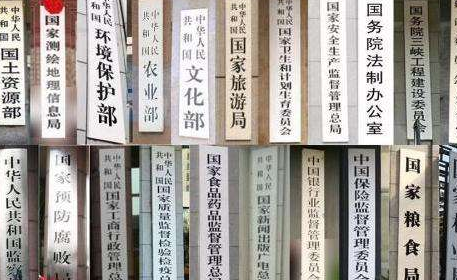 中华人民
共和国
国土资源部
国家测绘地理信息局
中华人民
共和国
环境保护部
中华人民
共和国
农业部
中华人民
共和国
文化部
中华人民
共和国
国家旅游局
中华人民
共和国
国家卫生和计划生育委员会
国家安全生产监督管理总局
国务院法制办公室
国务院三峡工程建设委员会
中华人民共和国监察
国家预防腐败局
中华人民
共和国
国家工商行政管理
中华人民
共和国
国家质量监督检验检疫
国家食品药品监督管理总局
中华人民
共和国
国家新闻出版广电总局
中国银行业监督管理委员会
中国保险监督管理委员会
国家粮食局